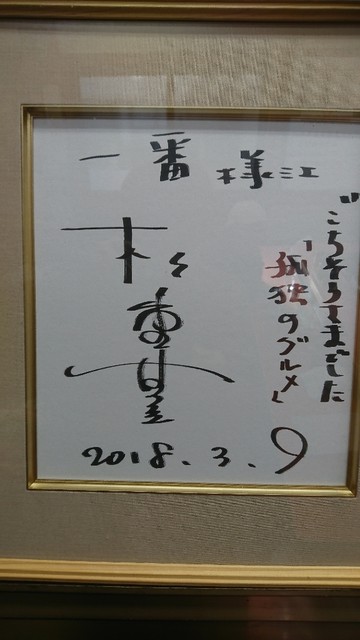 ごちそうさまでした
「孤独のグルメ」
一番 様江
松重豊
2018.3.9